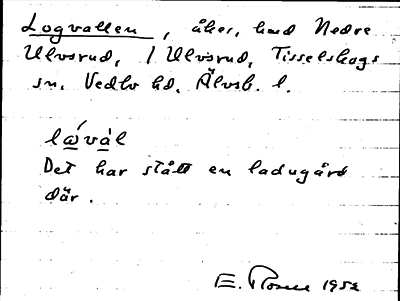 Logvallen, åker, hmd Nedre
Ulvsrud, 1 Ulvsrud, Tisselskogs
sn, Vedbo hd, Älvsb. l.
lω´vàl
Det har stått en ladugård
där.
E. Rosell 1952